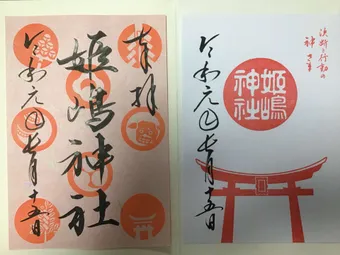 奉拝
姫嶋神社
令和元年七月十五日
決断と行動の
神さま
姫嶋
神社
令和元年七月十五日